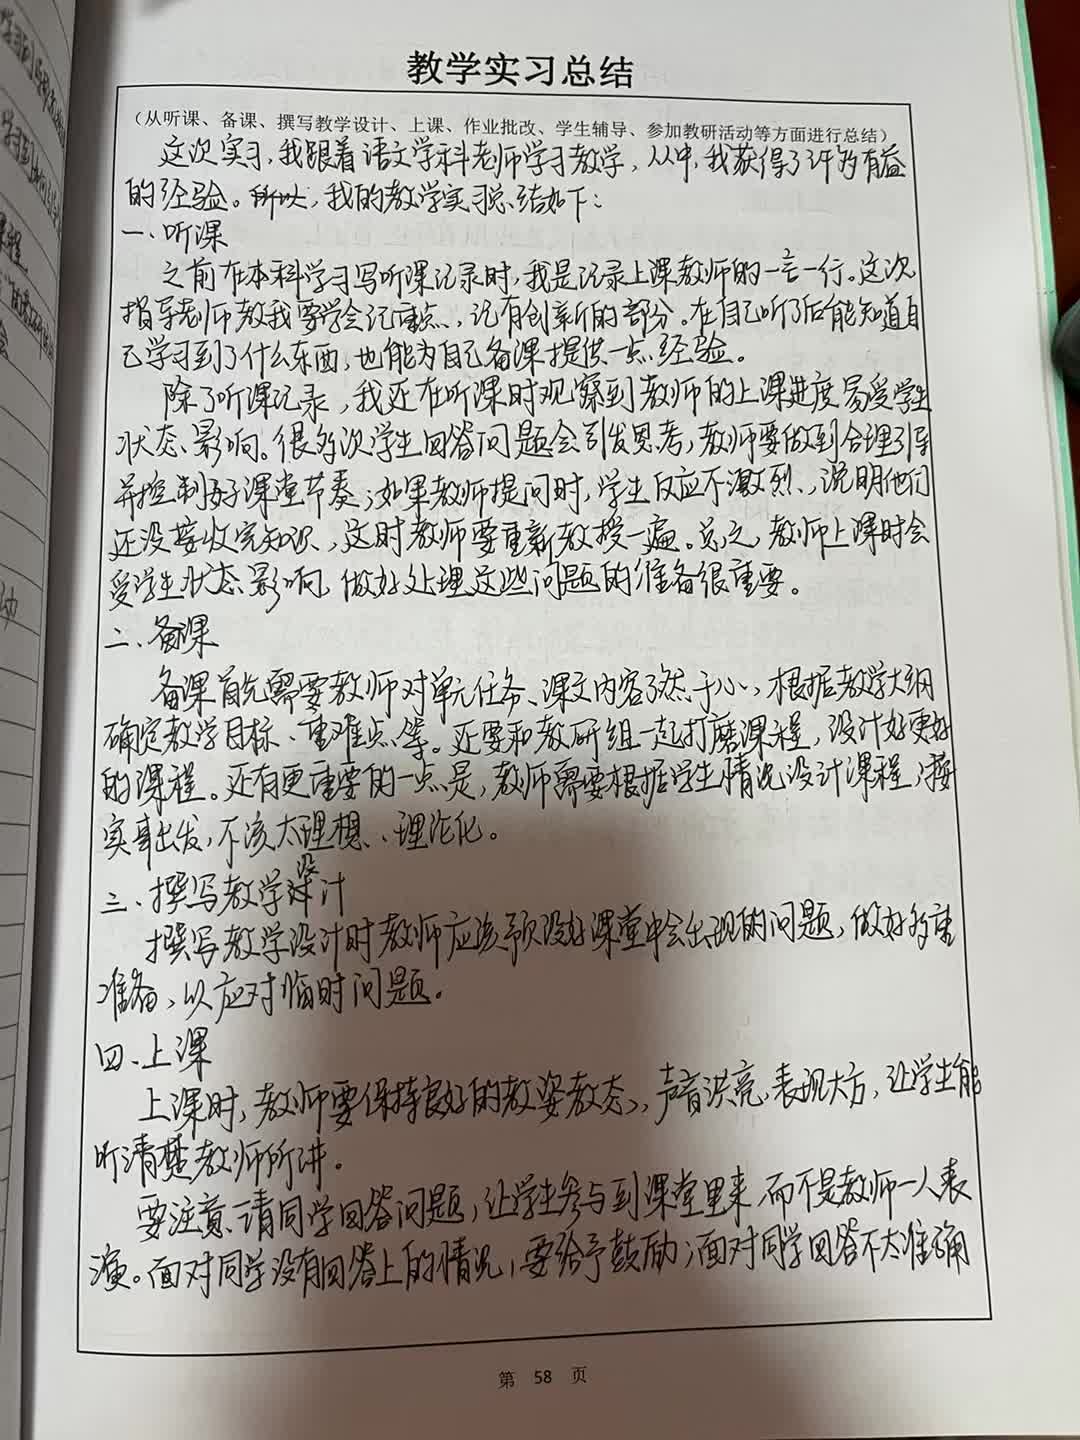 教学实习总结
（从听课、备课、撰写教学设计、上课、作业批改、学生辅导、参加教研活动等方面进行总结）
这次实习，我跟着语文学科老师学习教学，从中，我获得了许多有益
的经验。所以，我的教学实习总结如下：
一、听课
之前在本科学习写听课记录时，我是记录上课教师的一言一行。这次
指导老师教我要学会记重点，记有创新的部分。在自己听了后能知道自
己学习到了什么东西，也能为自己备课提供一点经验。
除了听课记录，我还在听课时观察到教师的上课进度易受学生
状态影响。很多次学生回答问题会引发思考，教师要做到合理引导
并控制好课堂节奏；如果教师提问时，学生反应不激烈，说明他们
还没接收完知识，这时教师要重新教授一遍。总之，教师上课时会
受学生状态影响，做好处理这些问题的准备很重要。
二、备课
备课首先需要教师对单元任务、课文内容了然于心，根据教学大纲
确定教学目标、重难点等。还要和教研组一起打磨课程，设计好更好
的课程。还有更重要的一点是，教师需要根据学生情况设计课程，按
实事出发，不该太理想、理论化。
三、撰写教学设计
撰写教学设计时教师应该预设好课堂中会出现的问题，做好多重
准备，以应对临时问题。
四、上课
上课时，教师要保持良好的教姿教态，声音洪亮，表现大方，让学生能
听清楚教师所讲。
要注意请同学回答问题，让学生参与到课堂里来，而不是教师一人表
演。面对同学没有回答上的情况，要给予鼓励；面对同学回答不太准确
第 58 页